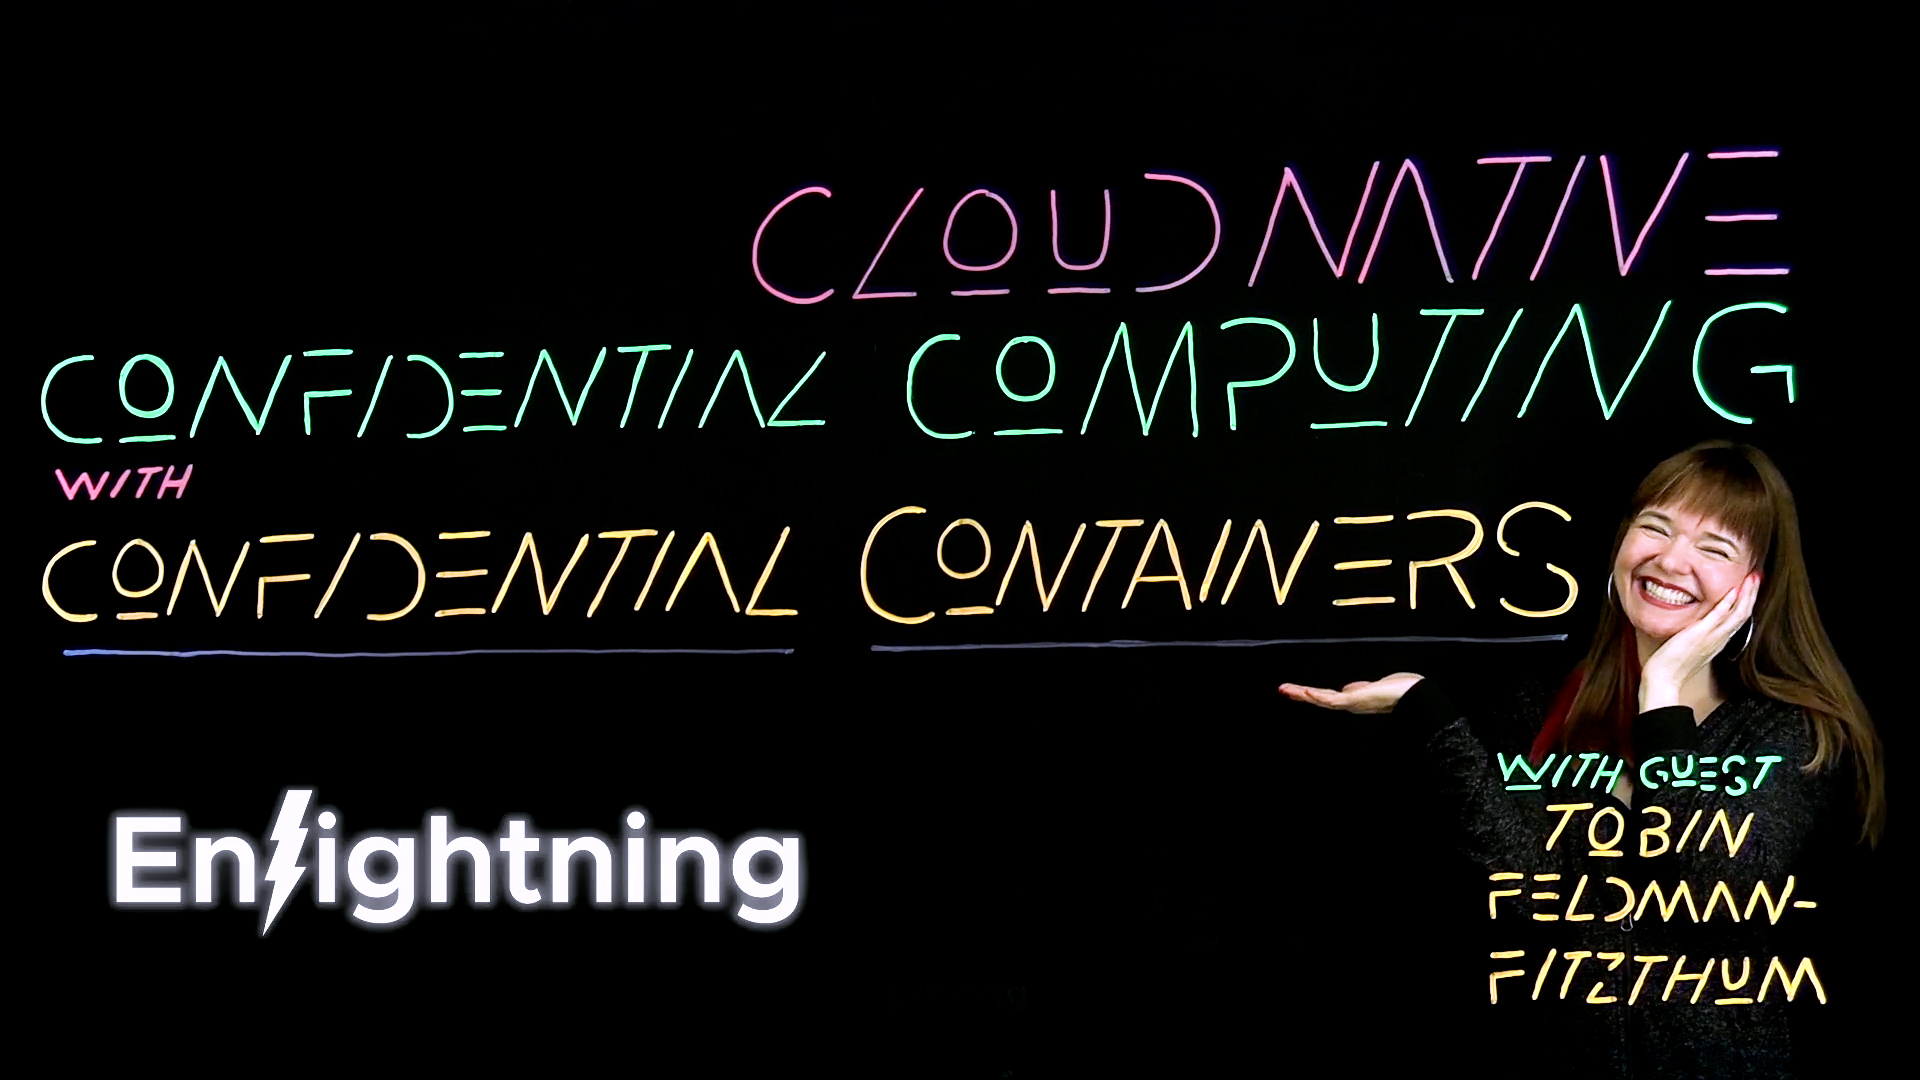 CLOUD NATIVE
CONFIDENTIAL COMPUTING
WITH
CONFIDENTIAL CONTAINERS
Enlightning
WITH GUEST
TOBIN
FELDMAN-
FITZTHUM